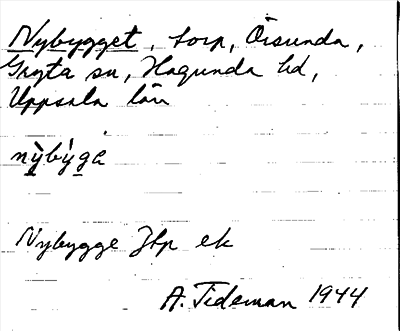 Nybygget, torp, Örsunda,
Gryta sn, Hagunda hd,
Uppsala län
nỳbỳge
Nybygge Jtp ek
A. Tideman 1944